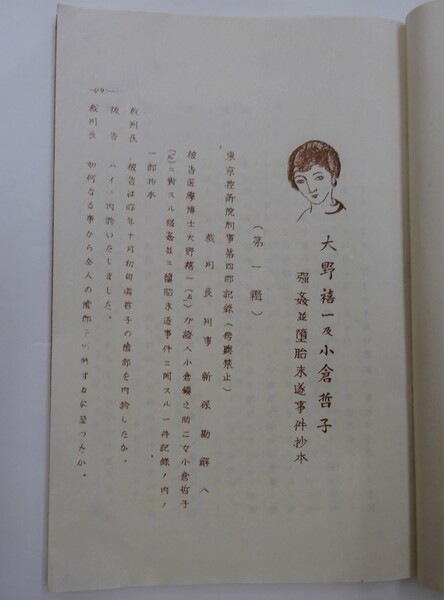 大野禧一及小倉哲子
强姦並墮胎未遂事件抄本
(第一輯)
東京控訴院刑事第四部記錄(旁聽禁止)
裁判長判事新保勘解人
被告医療博士大野禧一( )が諸人小倉 之助二女小倉哲子
( )ニ對スル强姦並ニ墮胎未遂事件ニ関スル一件記錄ノ内ノ
一部抄本
裁判長 被告は昨年十月初旬頃哲子の陰部を内診したか。
被告 ハイ、内診いたしました。
裁判長 如何なる事から仝人の陰部 内診するに至つたか。